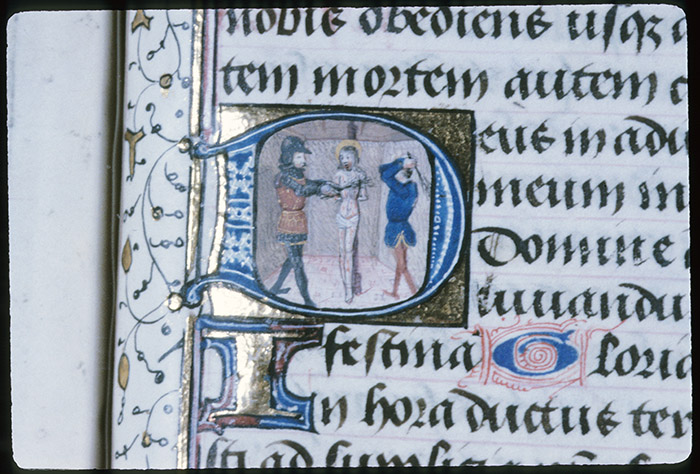 nobis obediens usqȝ a
tem mortem autem c
Deus in adiu
meum in
Domine
iuuandu
festina Gloria
In hora ductus ter